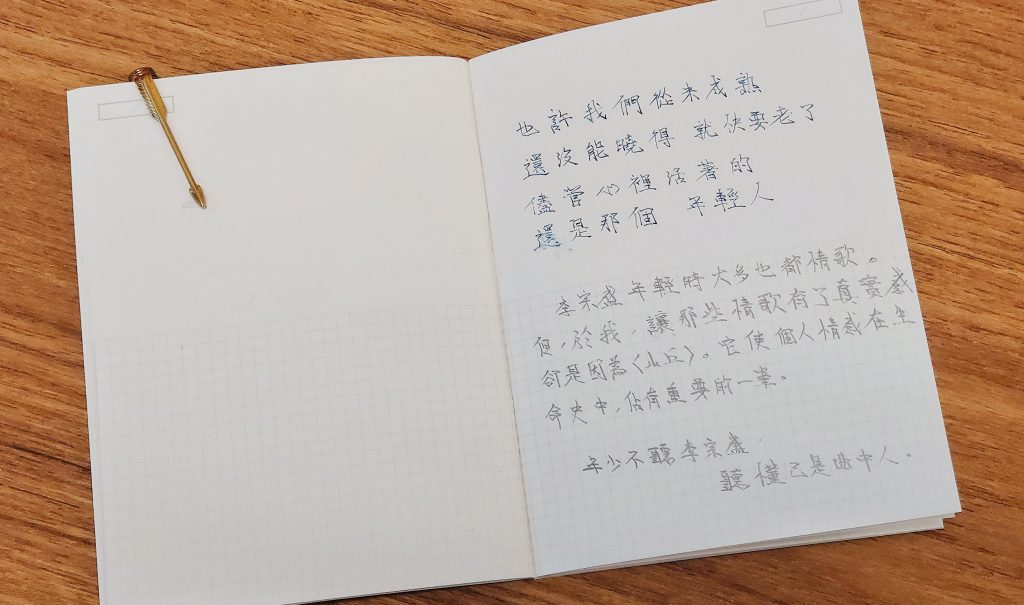 也許我們從未成熟
還沒能曉得 就快要老了
儘管心裡活著的
還是那個 年輕人
李宗盛年輕時大多也都情歌。
但,於我,讓那些情歌有了真實感
卻是因為〈山丘〉。它使個人情感在生
命史中,佔有重要的一筆。
年少不聽李宗盛,
聽懂已是曲中人。